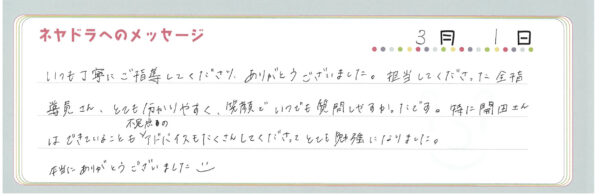 ネヤドラへのメッセージ
3月 1日
いつも丁寧にご指導してくださり、ありがとうございました。担当してくださった全指
導員さん、とても分かりやすく、笑顔でいつでも質問しやすかったです。特に開田さん
不足点の
はできていることもアドバイスもたくさんしてくださってとても勉強になりました。
本当にありがとうございました